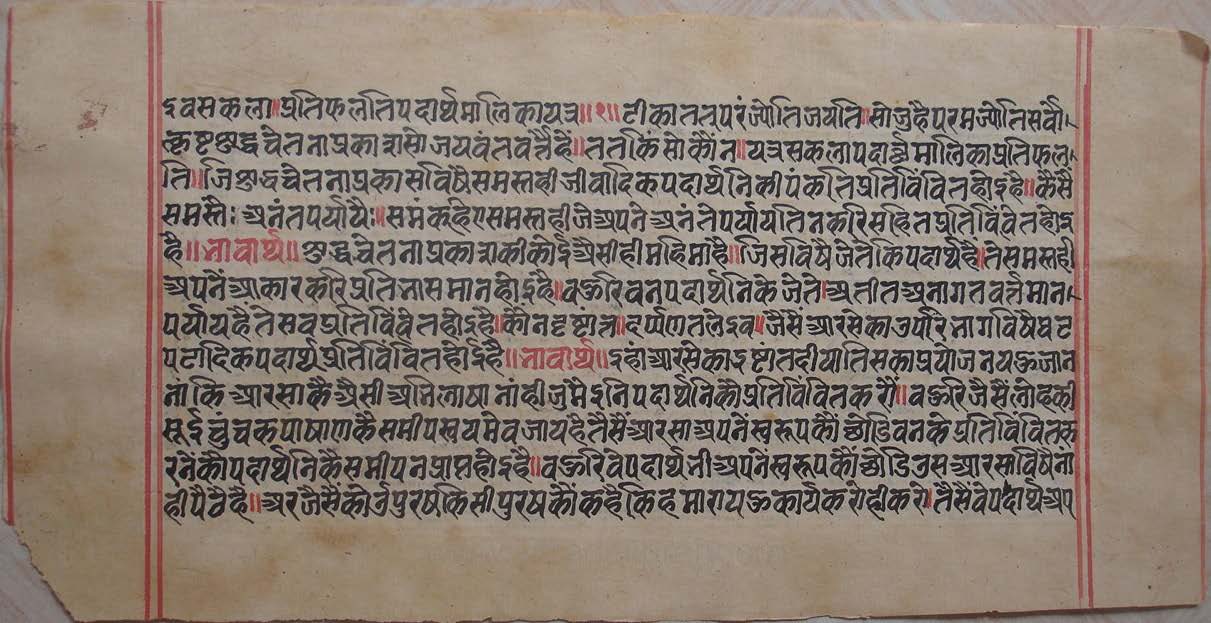 इव सकला॥प्रतिफलतिपदार्थमालिकायत्र॥१॥टीकातत्परंज्योतिजयति॥सोजुहैपरमज्योतिसर्वो
त्कृष्टशुद्धचेतनाप्रकाशसोजयवंतवर्त्तैहै॥तत्किंसोकौंन॥यत्रसकलापदार्थमालिकाप्रतिफल
ति॥जिशुद्धचेतनाप्रकासविषैसमस्तहीजीवादिकपदार्थनिकीपंकतिप्रतिविंवितहोइहै॥कैसैं
समस्तैःअनंतपर्यायैः॥समंकहिएसमस्तहीजेअपनेअनंतेपर्यायतिनकरिसहितप्रतिविंवितहोइ
है॥भावार्थ॥शुद्धचेतनाप्रकाशकीकोईअैसीहीमहिमाहै॥जिसविषैजेतेकिपदार्थहै॥तेसमस्तही
अपनेंआकारकरिप्रतिभासमानहोइहै॥वऊरिवनपदार्थनिकेजेते॥अतीतअनागतवर्त्तमान
पर्यायहैतेसवप्रतिविंवितहोइहै॥कौंनदृष्टांत॥दर्प्पणतलेइव॥जैसैंआरसेकाउपरिभागविषैघट
पटादिकपदार्थप्रतिविंवितहोईहै॥भावार्थ॥इहांआरसेकादृष्टांतदीयातिसकाप्रयोजनयऊजान
नाकिआरसाकैअैसीअभिलाषानांहीजुमैइनिपदार्थनिकौप्रतिविंवितकरौं॥वऊरिजैसैंलोहकी
सूईचुंवकपाषाणकैसमीपस्वयमेवजायहैतैसैंआरसाअपनेंस्वरूपकौंछोडिवनकेप्रतिविंवितक
रनेकौपदार्थनिकैसमीपनप्राप्तहोइहै॥वऊरिवेपदार्थभीअपनेंस्वरूपकौंछोडिउसआरसाविषैनां
हीपैवेहै॥अरजैसैंकोईपुरषकिसीपुरषकौंकहैकिहमारायऊकार्यकरोहीकरो॥तैसैंवेपदार्थअप